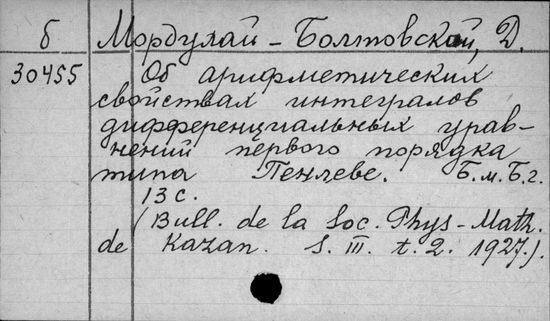 б Мордухай-Болтовской, Д.
30455 Об арифметических
свойствах интегралов
дифференциальных урав-
нений первого порядка
типа Пенлеве. Б.м.Б.г.
13 с.
(Bull. de la Soc. Phys-Math.
de Kazan. S. III. t. 2. 1927.).